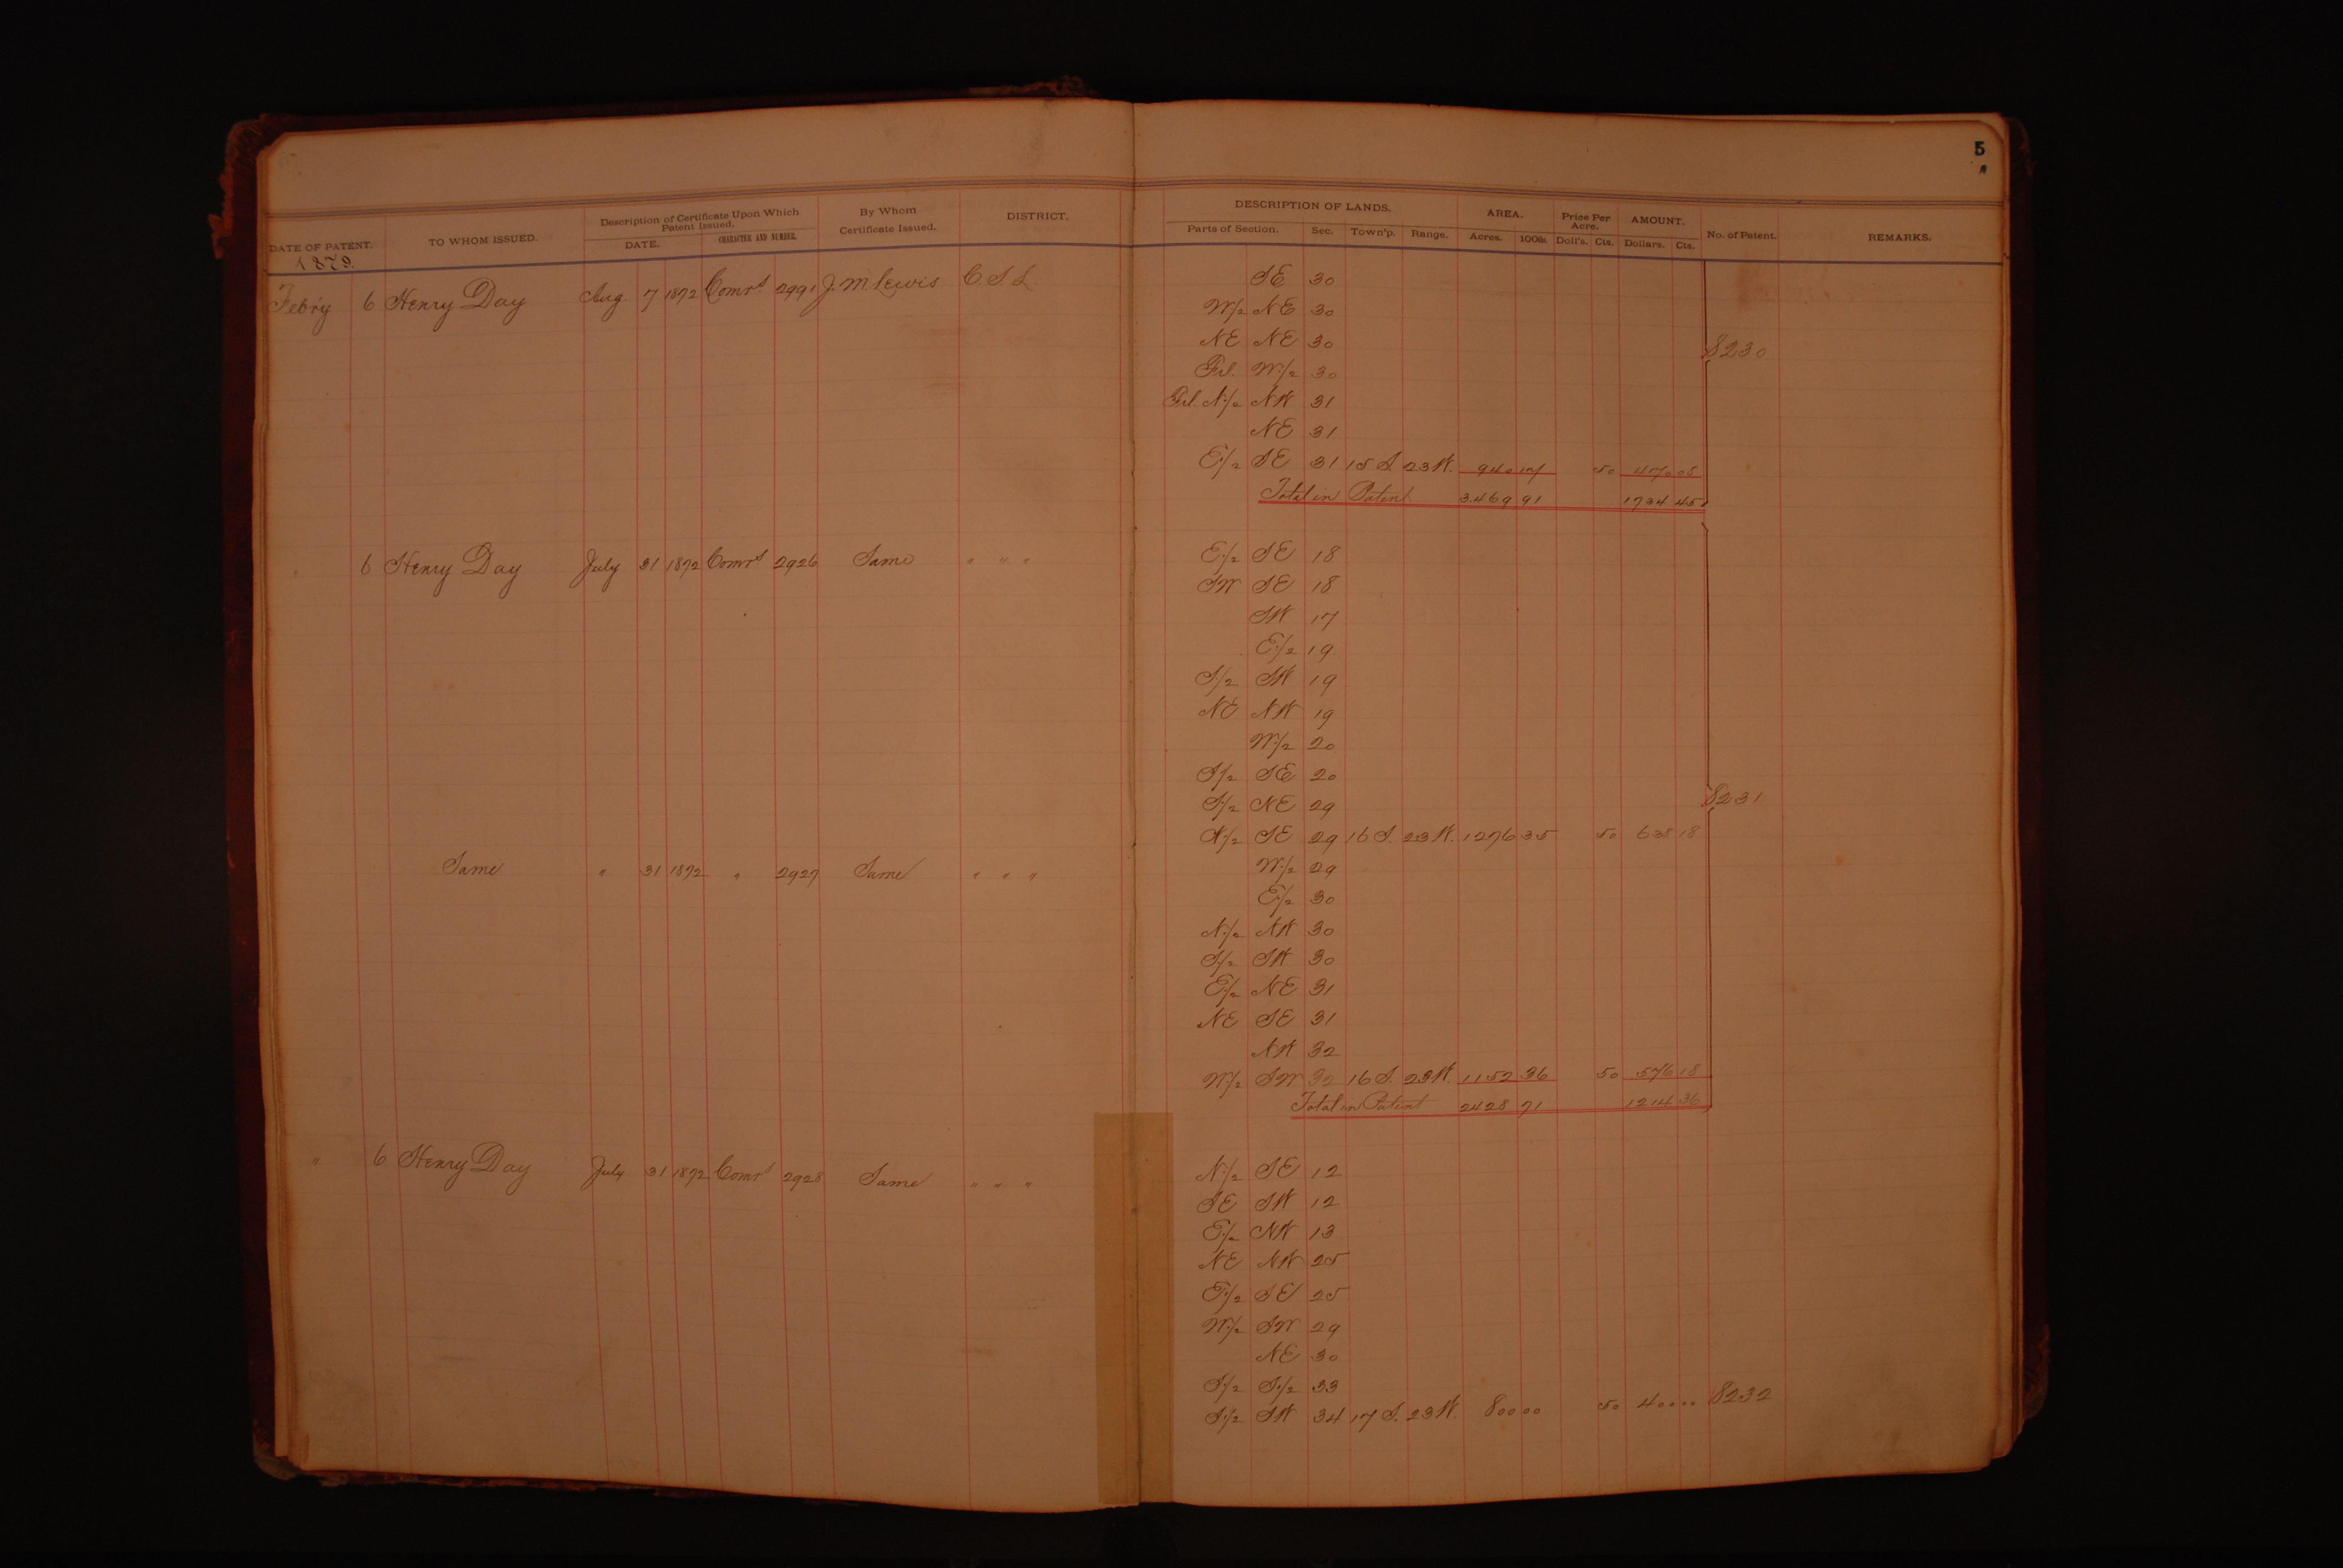 5
DATE OF PATENT. TO WHOM ISSUED. Description of Certificate Upon Which Patent Issued. DATE. CHARACTER AND NUMBER. By Whom Certificate Issued. DISTRICT. DESCRIPTION OF LANDS. Parts of Section. Sec. Town'p. Range. AREA. Acres. 100ths. Price Per Acre. Doll's. Cts. AMOUNT. Dollars. Cts. No. of Patent. REMARKS.
1879.
Feb'ry 6 Henry Day Aug. 7 1872 Comrs 2991 J. M. Lewis C. S. L. SE 30
W/2 NE 30
NE NE 30
8230
Frl. W/2 30
Frl. N/2 NW 31
NE 31
E/2 SE 31 15 S. 23 W. 940 17 50 470 08
Total in Patent 3469 91 1734 45
" 6 Henry Day July 31 1872 Comrs 2926 Same " " " E/2 SE 18
SW SE 18
SW 17
E/2 19
S/2 SW 19
NE NW 19
W/2 20
S/2 SE 20
S/2 NE 29
8231
N/2 SE 29 16 S. 23 W. 1276 35 50 638 18
Same " 31 1872 " 2927 Same " " " W/2 29
E/2 30
N/2 NW 30
S/2 SW 30
E/2 NE 31
NE SE 31
NW 32
W/2 SW 32 16 S. 23 W. 1152 36 50 576 18
Total in Patent 2428 71 1214 36
" 6 Henry Day July 31 1872 Comrs 2928 Same " " " N/2 SE 12
SE SW 12
E/2 NW 13
NE NW 25
E/2 SE 25
W/2 SW 29
NE 30
S/2 S/2 33
S/2 SW 34 17 S. 23 W. 800 00 50 400 00 8232